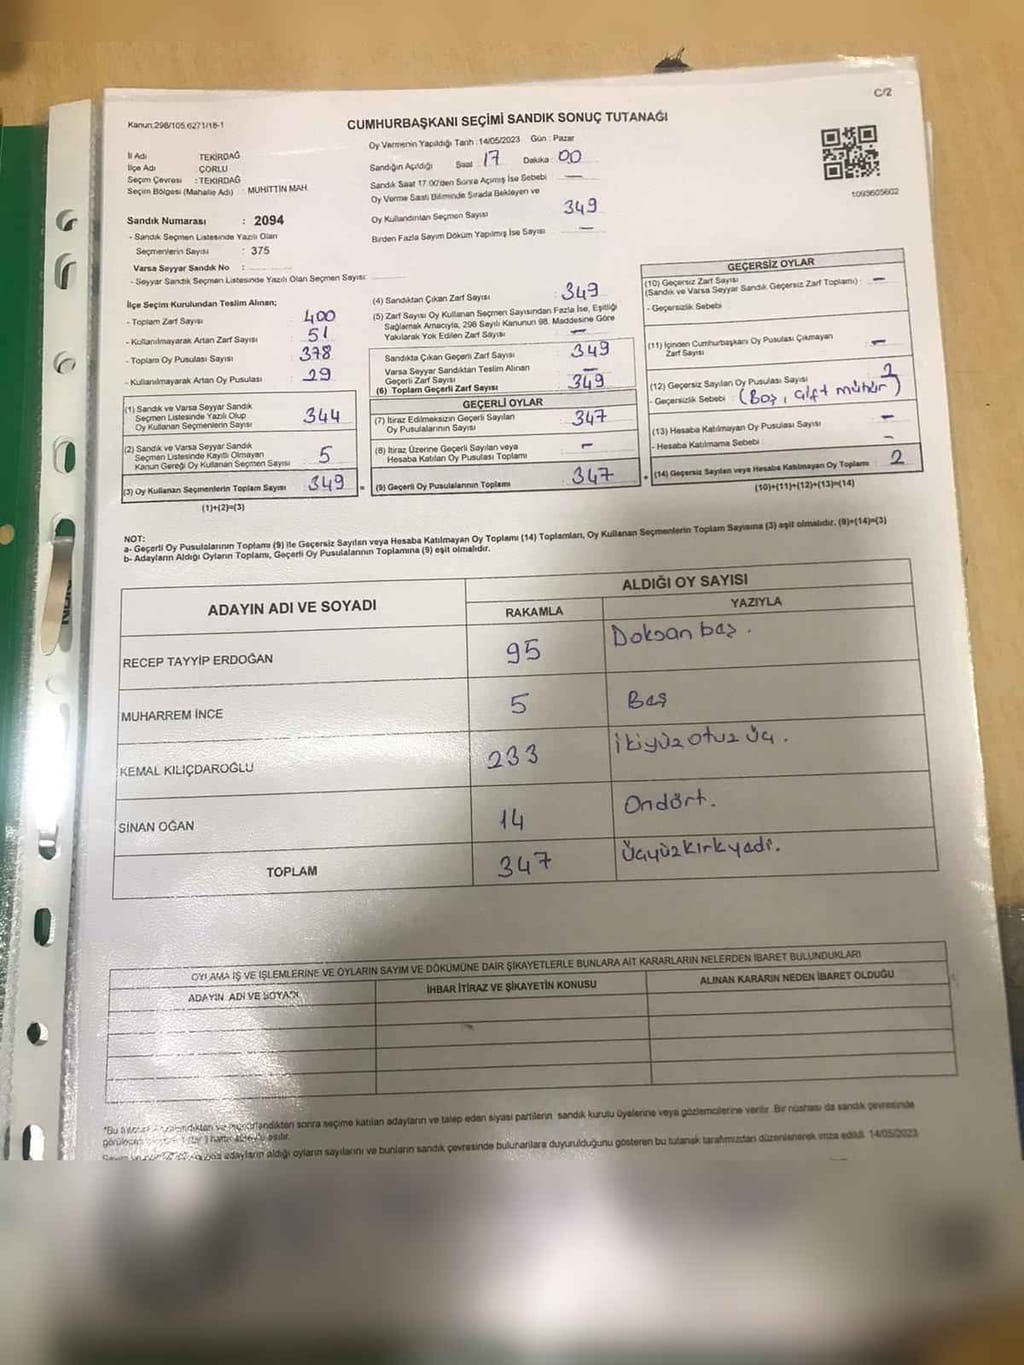 C/2
Kanun:298/105,6271/18-1
CUMHURBAŞKANI SEÇİMİ SANDIK SONUÇ TUTANAĞI
Oy Vermenin Yapıldığı Tarih :14/05/2023 Gün : Pazar
İl Adı TEKİRDAĞ
İlçe Adı ÇORLU
Seçim Çevresi : TEKİRDAĞ
Seçim Bölgesi (Mahalle Adı) : MUHİTTİN MAH.
Sandığın Açıldığı Saat : 17 Dakika : 00
Sandık Saat 17.00'den Sonra Açılmış İse Sebebi —
Oy Verme Saati Bitiminde Sırada Bekleyen ve
Oy Kullandırılan Seçmen Sayısı 349
Birden Fazla Sayım Döküm Yapılmış İse Sayısı —
1093605602
Sandık Numarası : 2094
- Sandık Seçmen Listesinde Yazılı Olan
Seçmenlerin Sayısı : 375
Varsa Seyyar Sandık No :
- Seyyar Sandık Seçmen Listesinde Yazılı Olan Seçmen Sayısı:
İlçe Seçim Kurulundan Teslim Alınan;
- Toplam Zarf Sayısı 400
- Kullanılmayarak Artan Zarf Sayısı 51
- Toplam Oy Pusulası Sayısı 378
- Kullanılmayarak Artan Oy Pusulası 29
(1) Sandık ve Varsa Seyyar Sandık
Seçmen Listesinde Yazılı Olup
Oy Kullanan Seçmenlerin Sayısı 344
(2) Sandık ve Varsa Seyyar Sandık
Seçmen Listesinde Kayıtlı Olmayan
Kanun Gereği Oy Kullanan Seçmen Sayısı 5
(3) Oy Kullanan Seçmenlerin Toplam Sayısı : 349 =
(1)+(2)=(3)
(4) Sandıktan Çıkan Zarf Sayısı : 349
(5) Zarf Sayısı Oy Kullanan Seçmen Sayısından Fazla İse, Eşitliği
Sağlamak Amacıyla, 298 Sayılı Kanunun 98. Maddesine Göre
Yakılarak Yok Edilen Zarf Sayısı : —
Sandıkta Çıkan Geçerli Zarf Sayısı 349
Varsa Seyyar Sandıktan Teslim Alınan
Geçerli Zarf Sayısı —
(6) Toplam Geçerli Zarf Sayısı 349
GEÇERLİ OYLAR
(7) İtiraz Edilmeksizin Geçerli Sayılan
Oy Pusulalarının Sayısı : 347
(8) İtiraz Üzerine Geçerli Sayılan veya
Hesaba Katılan Oy Pusulası Toplamı : -
(9) Geçerli Oy Pusulalarının Toplamı : 347 +
GEÇERSİZ OYLAR
(10) Geçersiz Zarf Sayısı
(Sandık ve Varsa Seyyar Sandık Geçersiz Zarf Toplamı) : —
- Geçersizlik Sebebi :
(11) İçinden Cumhurbaşkanı Oy Pusulası Çıkmayan
Zarf Sayısı : —
(12) Geçersiz Sayılan Oy Pusulası Sayısı : 2
- Geçersizlik Sebebi : (Boş, çift mühür)
(13) Hesaba Katılmayan Oy Pusulası Sayısı : —
- Hesaba Katılmama Sebebi : -
(14) Geçersiz Sayılan veya Hesaba Katılmayan Oy Toplamı : 2
(10)+(11)+(12)+(13)=(14)
NOT:
a- Geçerli Oy Pusulalarının Toplamı (9) ile Geçersiz Sayılan veya Hesaba Katılmayan Oy Toplamı (14) Toplamları, Oy Kullanan Seçmenlerin Toplam Sayısına (3) eşit olmalıdır. (9)+(14)=(3)
b- Adayların Aldığı Oyların Toplamı, Geçerli Oy Pusulalarının Toplamına (9) eşit olmalıdır.
ADAYIN ADI VE SOYADI
ALDIĞI OY SAYISI
RAKAMLA YAZIYLA
RECEP TAYYİP ERDOĞAN 95 Doksan beş.
MUHARREM İNCE 5 Beş
KEMAL KILIÇDAROĞLU 233 İkiyüz otuz üç.
SİNAN OĞAN 14 Ondört.
TOPLAM 347 Üçyüzkırkyedi.
OYLAMA İŞ VE İŞLEMLERİNE VE OYLARIN SAYIM VE DÖKÜMÜNE DAİR ŞİKAYETLERLE BUNLARA AİT KARARLARIN NELERDEN İBARET BULUNDUKLARI
ADAYIN ADI VE SOYADI İHBAR İTİRAZ VE ŞİKAYETİN KONUSU ALINAN KARARIN NEDEN İBARET OLDUĞU
sonra seçime katılan adayların ve talep eden siyasi partilerin sandık kurulu üyelerine veya gözlemcilerine verilir. Bir nüshası da sandık çevresinde
adayların aldığı oyların sayılarını ve bunların sandık çevresinde bulunanlara duyurulduğunu gösteren bu tutanak tarafımızdan düzenlenerek imza edildi. 14/05/2023